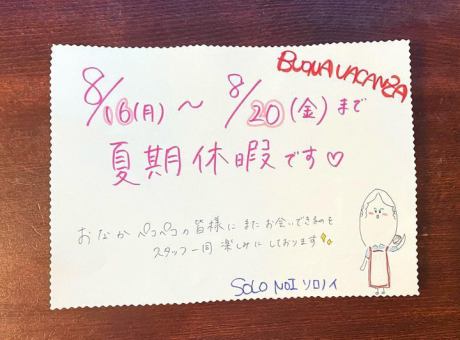 BUONA VACANZA
8/16(月)～8/20(金)まで
夏期休暇です♡
おなかペコペコの皆様にまたお会いできるのを
スタッフ一同楽しみにしております✨
SOLO NOI ソロノイ